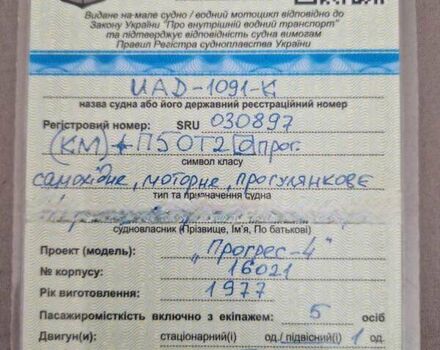 Видане на мале судно / водний мотоцикл відповідно до
Закону України "Про внутрішній водний транспорт"
та підтверджує відповідність судна вимогам
Правил Регістра судноплавства України
UAD-1091-К
назва судна або його державний реєстраційний номер
Регістровий номер: SRU 030897
(КМ) П5 ОТ2 прог.
символ класу
самохідне, моторне, прогулянкове
тип та призначення судна
судновласник (Прізвище, Ім'я, По батькові)
Проект (модель): „Прогрес-4"
№ корпусу: 16021
Рік виготовлення: 1977
Пасажиромісткість включно з екіпажем: 5 осіб
Двигун(и): стаціонарний(і) од./ підвісний(і) 1 од.